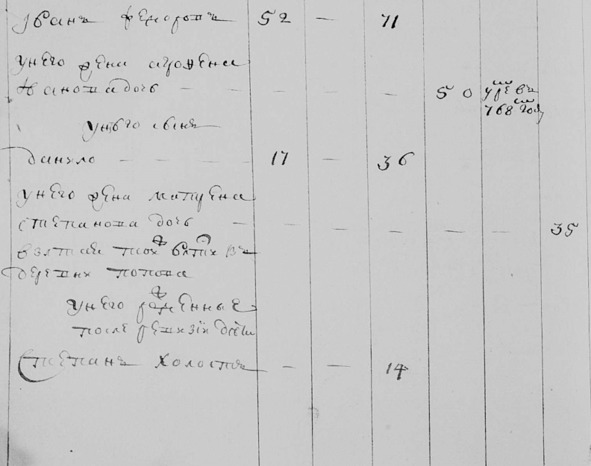 Иванъ Федоровъ 52 — 71
у него жена агрофена
Иванова дочь — — — — 50 умре въ
768 году
у него сынъ
данило — — — 17 — 36
у него жена матрена
степанова дочь — — — — — — 35
взятая той ж вятки въ
деревни попова
у него рожденные
после ревизіи дети
Степанъ холостъ — — 14